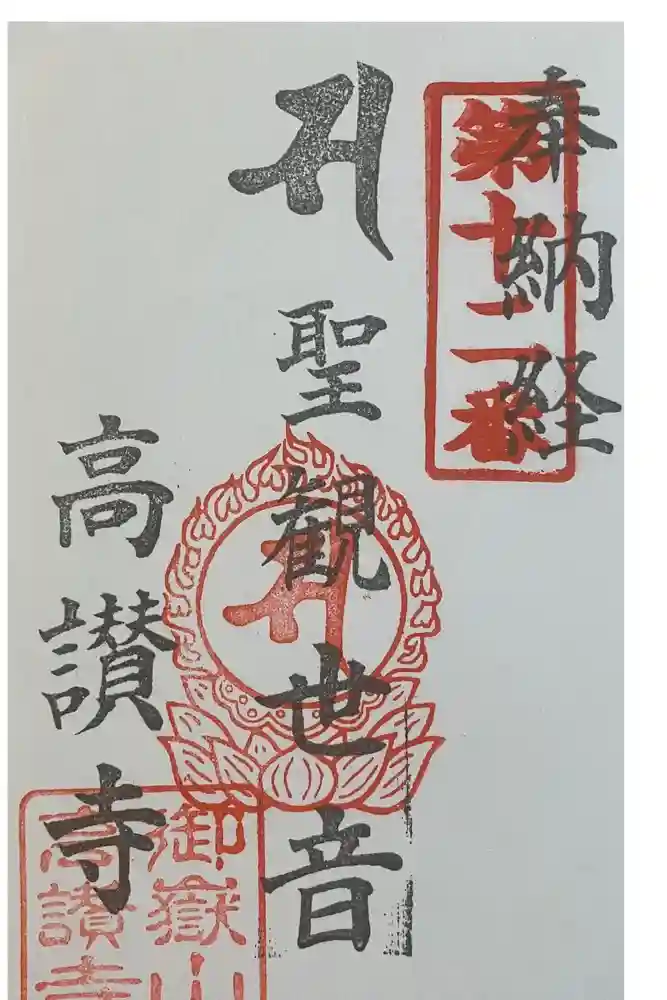 奉納経
第十二番
聖観世音
高讃寺
御嶽山
高讃寺